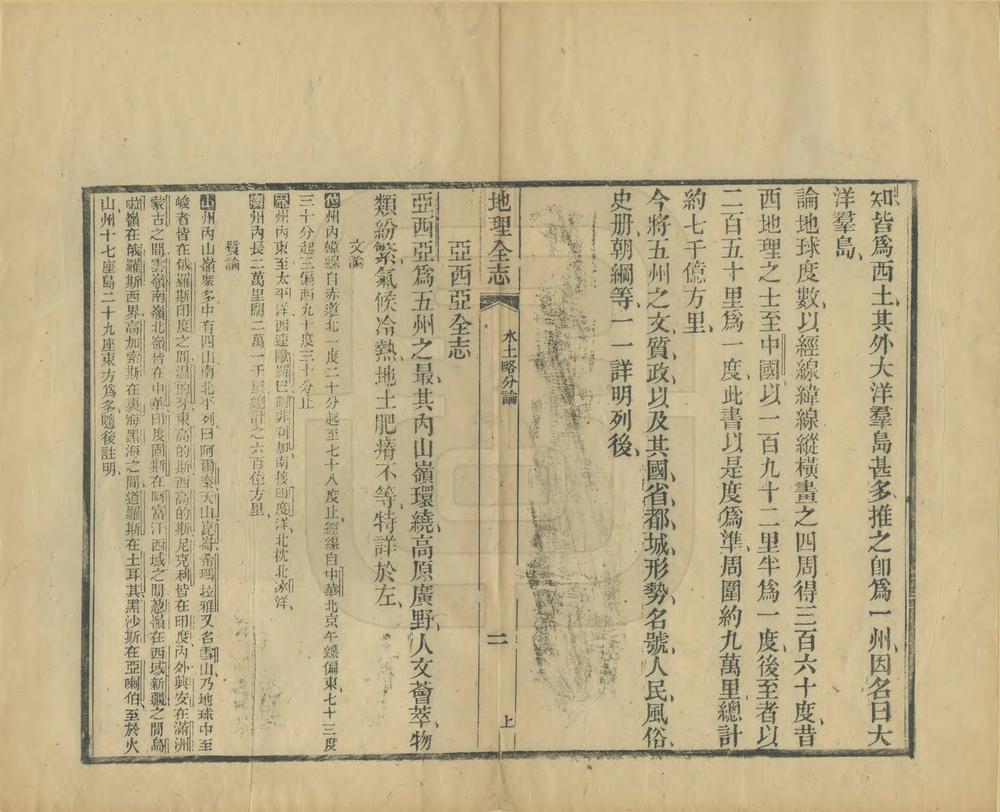 知皆爲西土、其外大洋羣島甚多、推之卽爲一州、因名曰大
洋羣島、
論地球度數、以經線緯線縱橫畫之四周、得三百六十度、昔
西地理之士至中國、以一百九十二里半爲一度、後至者以
二百五十里爲一度、此書以是度爲準、周圍約九萬里、總計
約七千億方里、
今將五州之文質政、以及其國省都城、形勢、名號、人民、風俗、
史册、朝綱等、一一詳明列後、
地理全志
水土略分論
二
上
亞西亞全志
亞西亞爲五州之最、其內山嶺環繞、高原廣野、人文薈萃、物
類紛繁、氣候冷熱、地土肥瘠不等、特詳於左、
文論
州內緯線自赤道北一度二十分起至七十八度止經線自中華北京午線偏東七十三度
三十分起三偏西九十度三十分止
州內東至太平洋西連歐羅巴阿非利加南接印度洋北枕北冰洋、
州內長二萬里闊二萬一千里總計之六百億方里、
質論
山州內山嶺衆多中有四山南北平列曰阿爾泰天山崑崙希瑪拉雅又名雪山乃地球中至
峻者皆在俄羅斯印度之間溫的亞東高的斯西高的斯尼克利皆在印度內外興安在滿洲
蒙古之間雲嶺南嶺北嶺皆在中華印度固斯在阿富汗西域之間葱嶺在西域新疆之間烏
嶺在俄羅斯西界高加索斯在裏海黑海之間道羅斯在土耳其黑沙斯在亞喇伯至於火
山州十七座島二十九座東方爲多隨後註明、